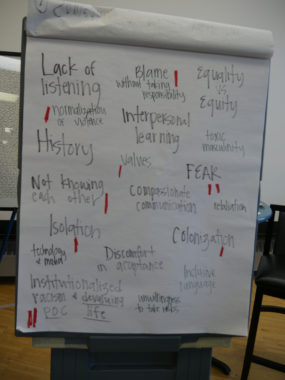 Lack of
listening
Blame
without taking
responsibility
Equality
vs
Equity
normalization
of violence
Interpersonal
learning
toxic
masculinity
History
values
FEAR
Not knowing
each other
compassionate
communication
retaliation
Isolation
Colonization
technology
Discomfort
in acceptance
Inclusive
language
Institutionalized
racism & devaluing
POC life
unwillingness
to take risks